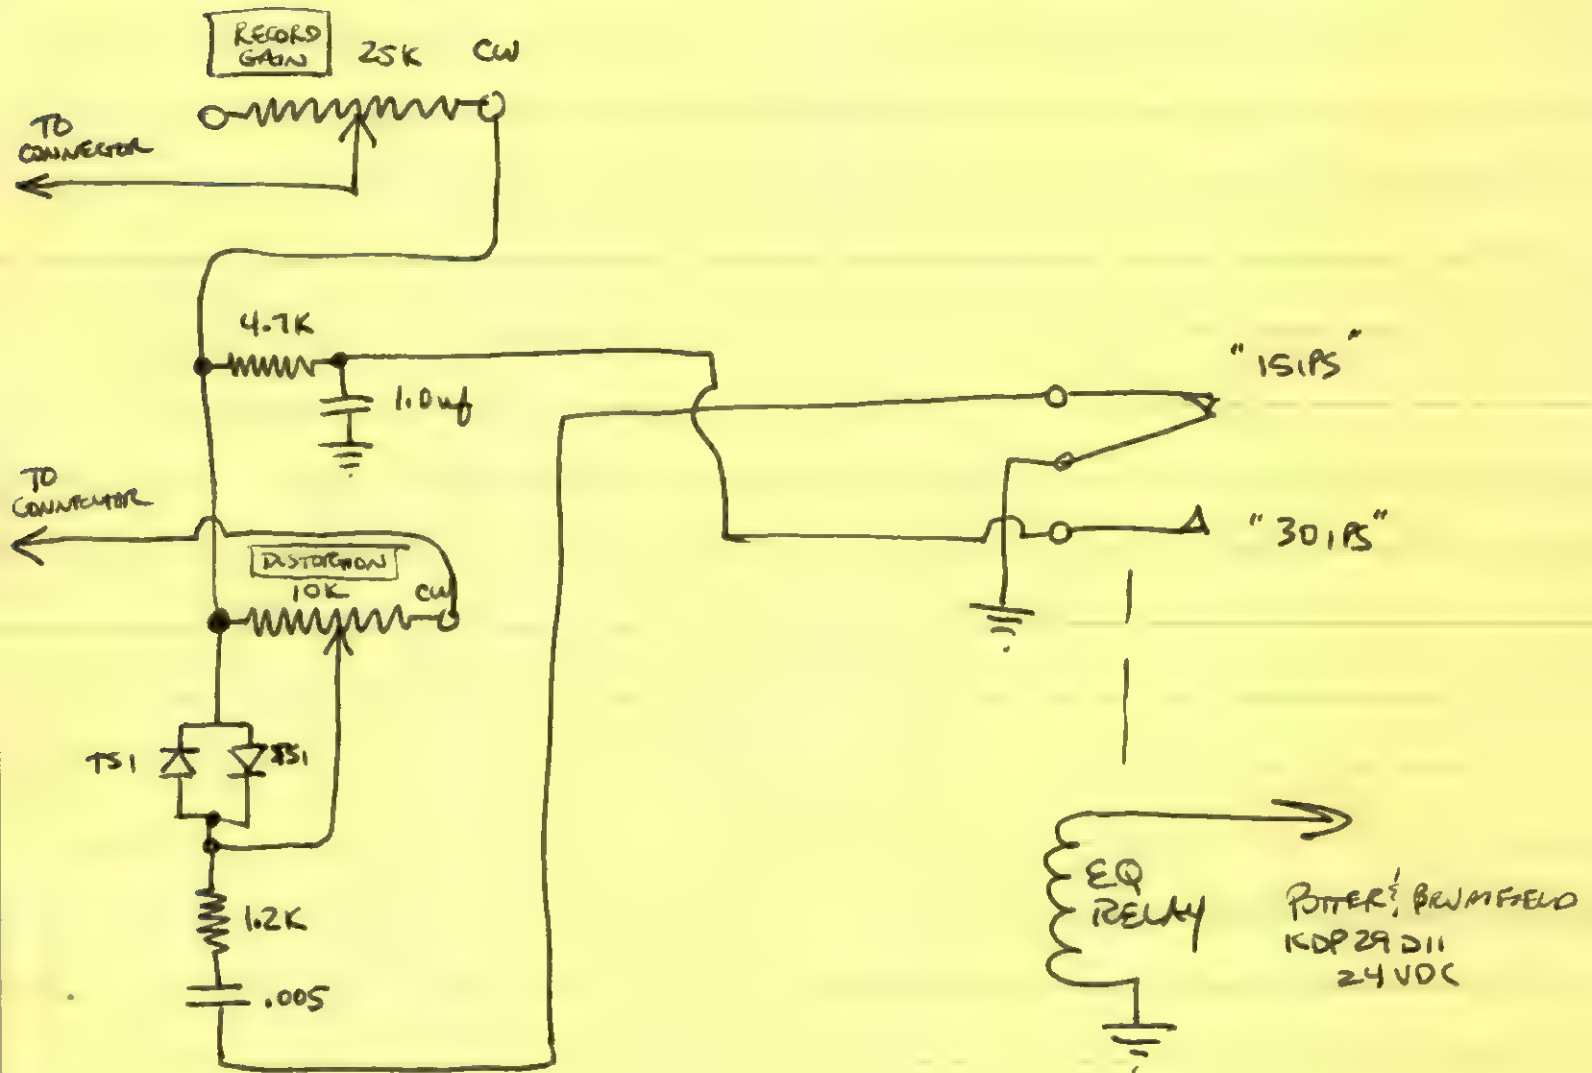 RECORD
GAIN
25K CW
TO
CONNECTOR
4.7K
1.0uf
"15IPS"
TO
CONNECTOR
DISTORTION
10K CW
"30IPS"
TS1 TS1
1.2K
.005
EQ
RELAY
POTTER & BRUMFIELD
KDP29D11
24VDC